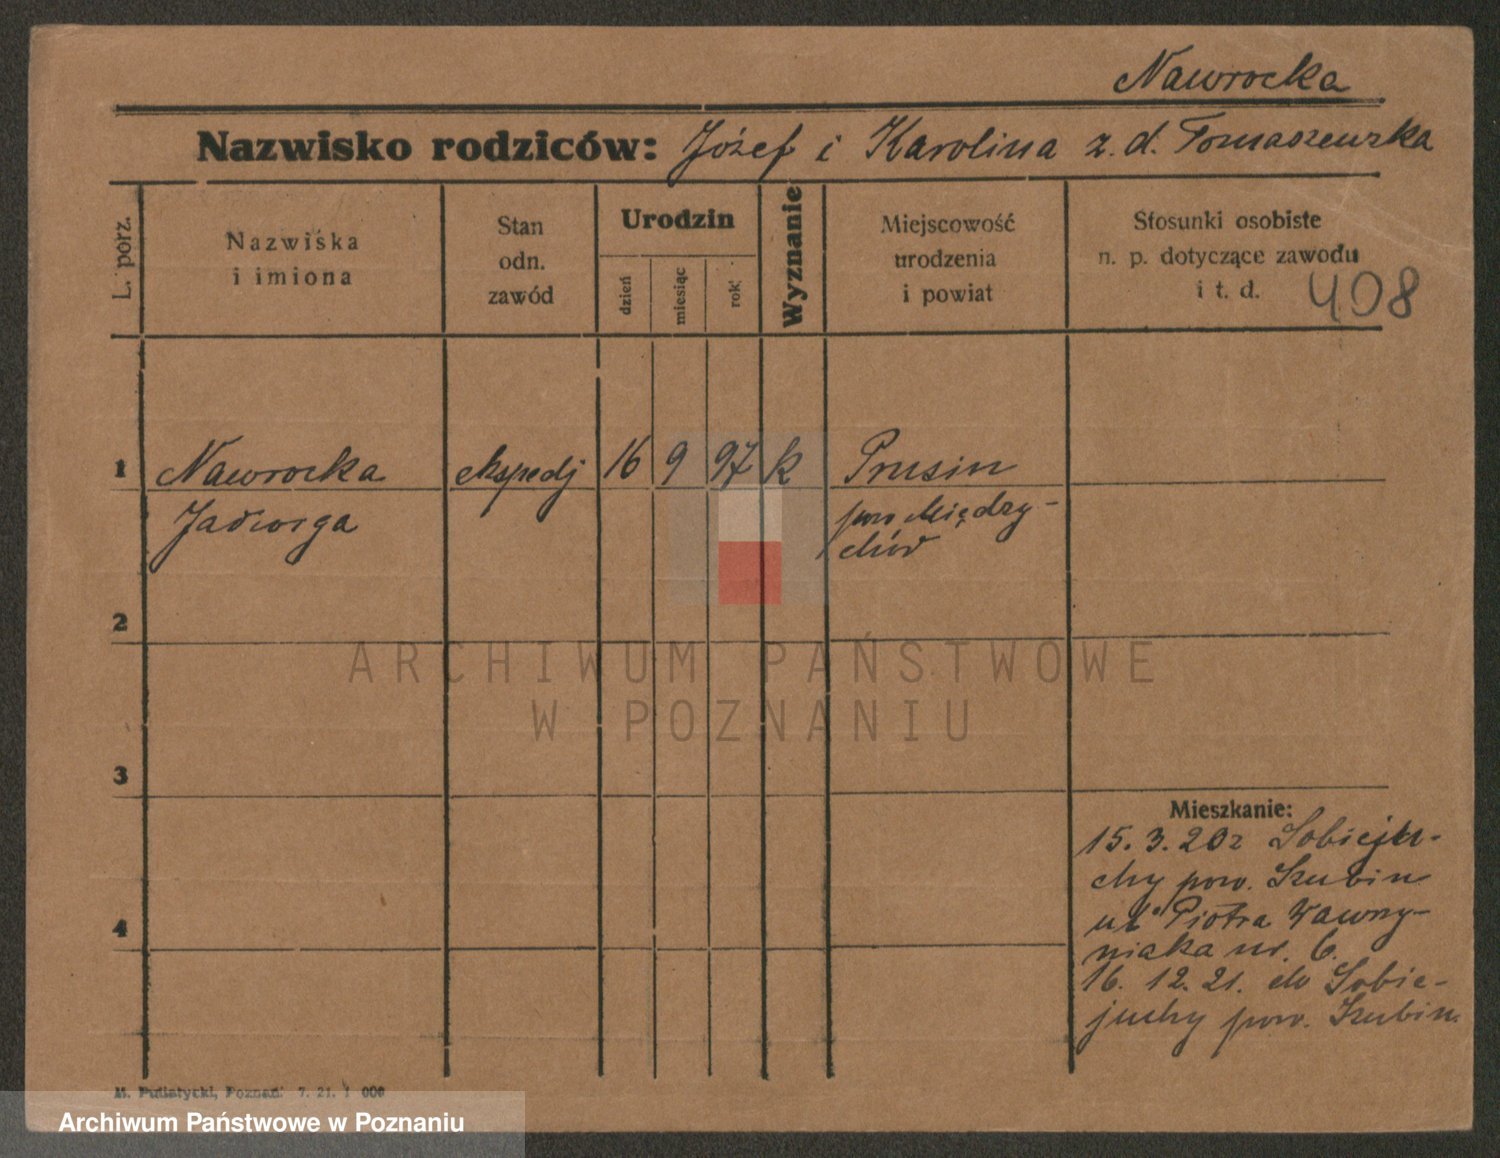 Nawrocka
Nazwisko rodziców: Józef i Karolina z. d. Tomaszewska
L. porz.
Nazwiska
i imiona
Stan
odn.
zawód
Urodzin
dzień
miesiąc
rok
Wyznanie
Miejscowość
urodzenia
i powiat
Stosunki osobiste
n. p. dotyczące zawodu
i t. d.
408
1 Nawrocka ekspedj 16 9 97 k Prusin
Jadwiga pow Między-
chód
2
3
4
Mieszkanie:
15.3.20 z Sobieju-
chy pow. Szubin
ul Piotra Wawrzy-
niaka nr. 6.
16. 12. 21. do Sobie-
juchy pow. Szubin.
M. Putiatycki, Poznań 7. 21. 1 000
ARCHIWUM PAŃSTWOWE
W POZNANIU
Archiwum Państwowe w Poznaniu